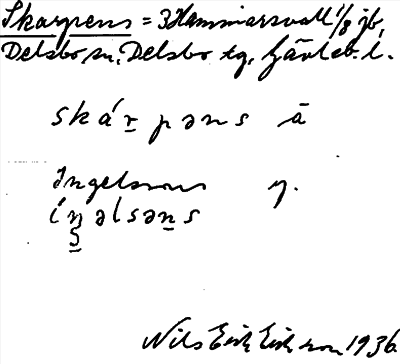 Skarpens = 3 Hammarsvall 1/8 jb,
Delsbo sn, Delsbo tg, Gävleb. l.
skár̲pəns ā
Ingelsons y.
íŋəlsən̲s
Nils Erik Eriksson 1936